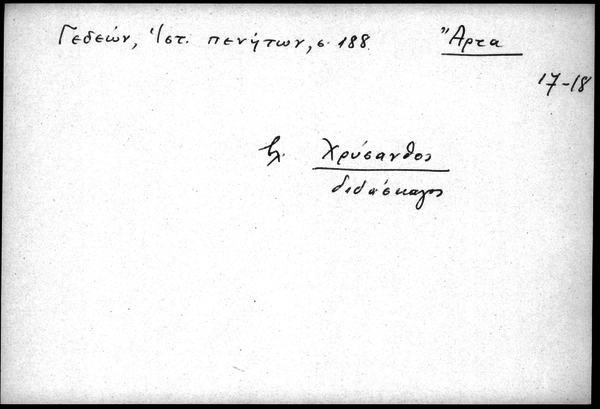 Γεδεών, Ἱστ. πενήτων, σ. 188. Ἄρτα
17-18
βλ. Χρύσανθος
διδάσκαλος